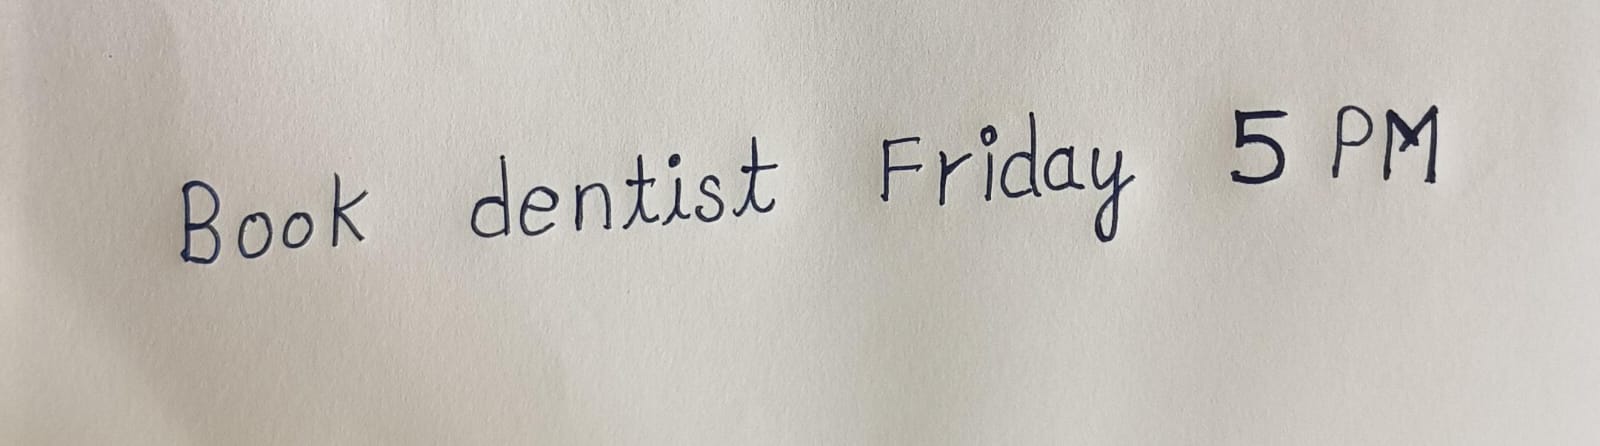 Book dentist Friday 5 PM